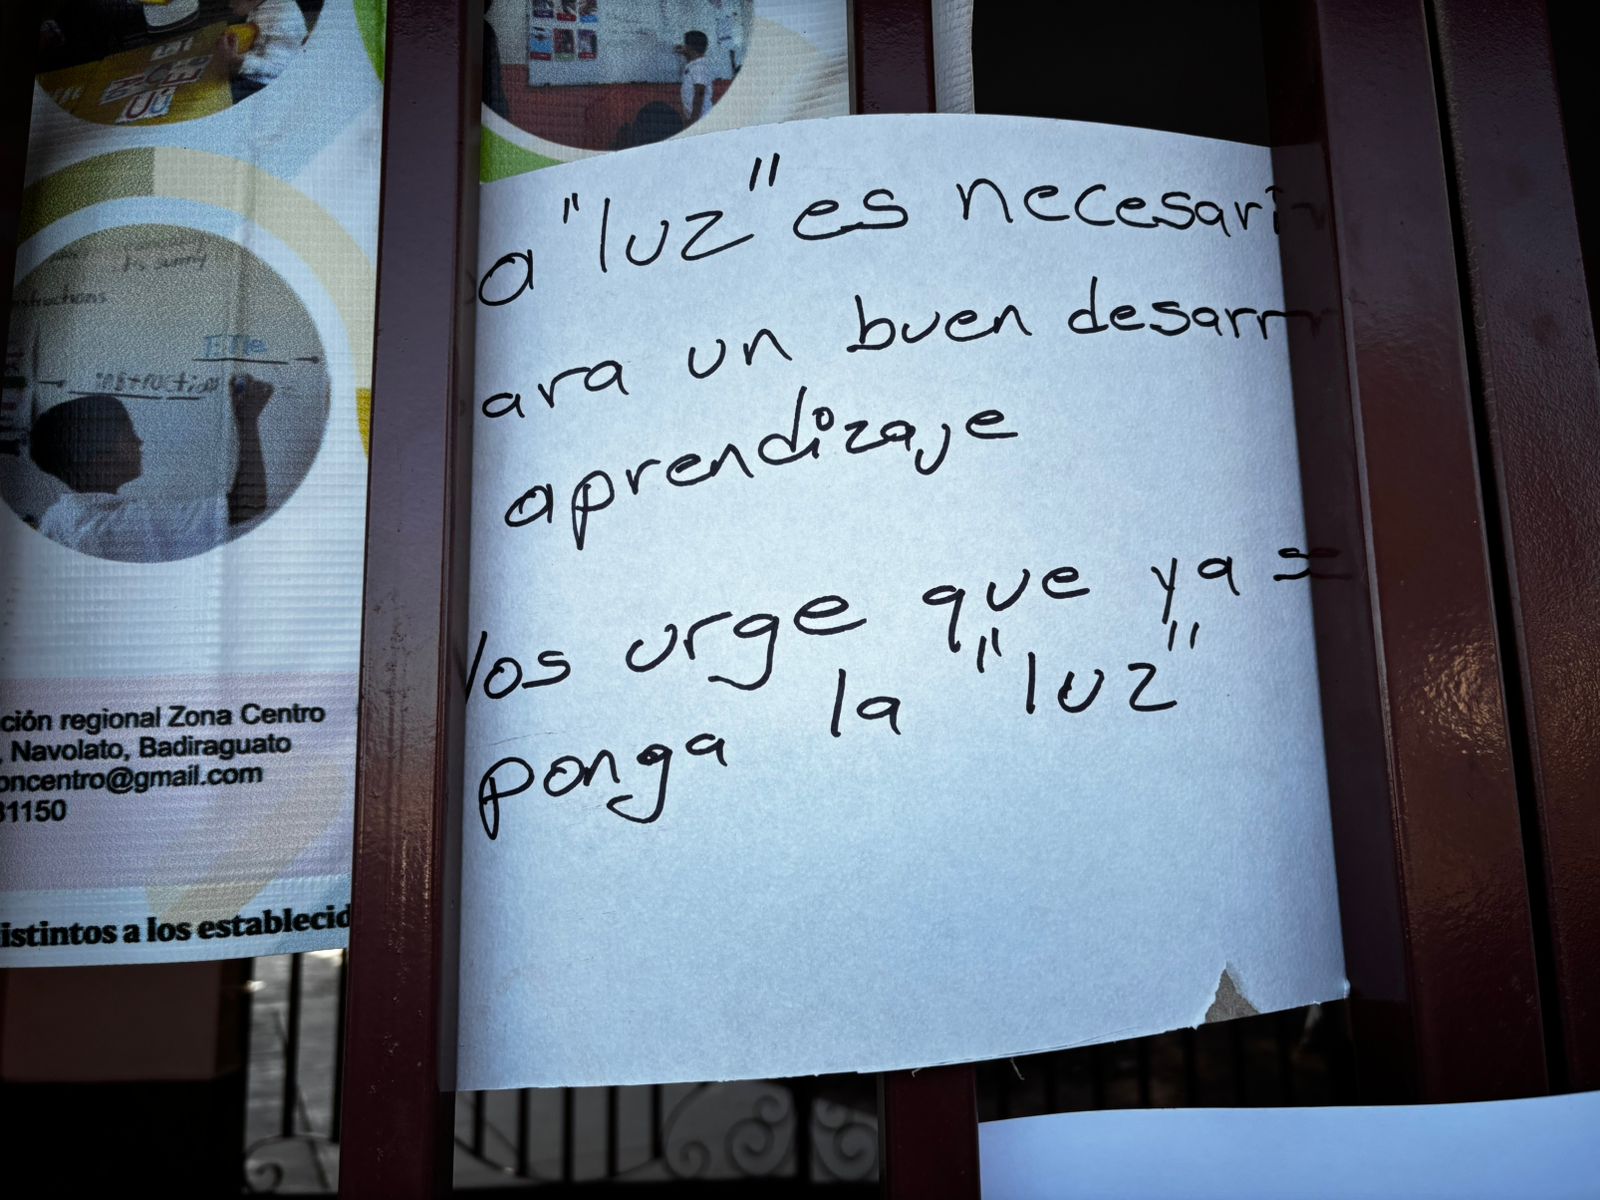 a "luz" es necesari
ara un buen desarr
aprendizaje
Nos urge que ya se
ponga la "luz"
ción regional Zona Centro
, Navolato, Badiraguato
oncentro@gmail.com
31150
istintos a los establecid
instruction